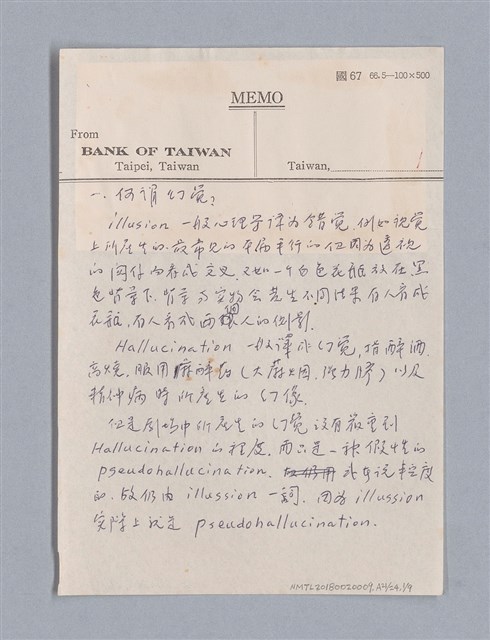 國 67 66.5—100×500
MEMO
From
BANK OF TAIWAN
Taipei, Taiwan
Taiwan,
一. 何謂幻覺?
illusion 一般心理学译为錯覚, 例如視覚
上所產生的. 最常見的本屬平行的但因為透視
的関係而看成交叉. 又如一个白色花瓶放在黑
色背景下, 背景与实物会產生不同结果 有人看成
花瓶, 有人看成两個人的側影.
Hallucination 一般譯作幻覚, 指醉酒.
高燒, 服用麻醉药 (大蔴烟. 强力膠) 以及
精神病時所產生的幻像.
但是劇場中所產生的幻覚 没有嚴重到
Hallucination 的程度. 而只是一种假性的
pseudohallucination.
的, 故仍由 illussion 一詞. 因為 illussion
实際上就是 pseudohallucination.
NMTL20180020009